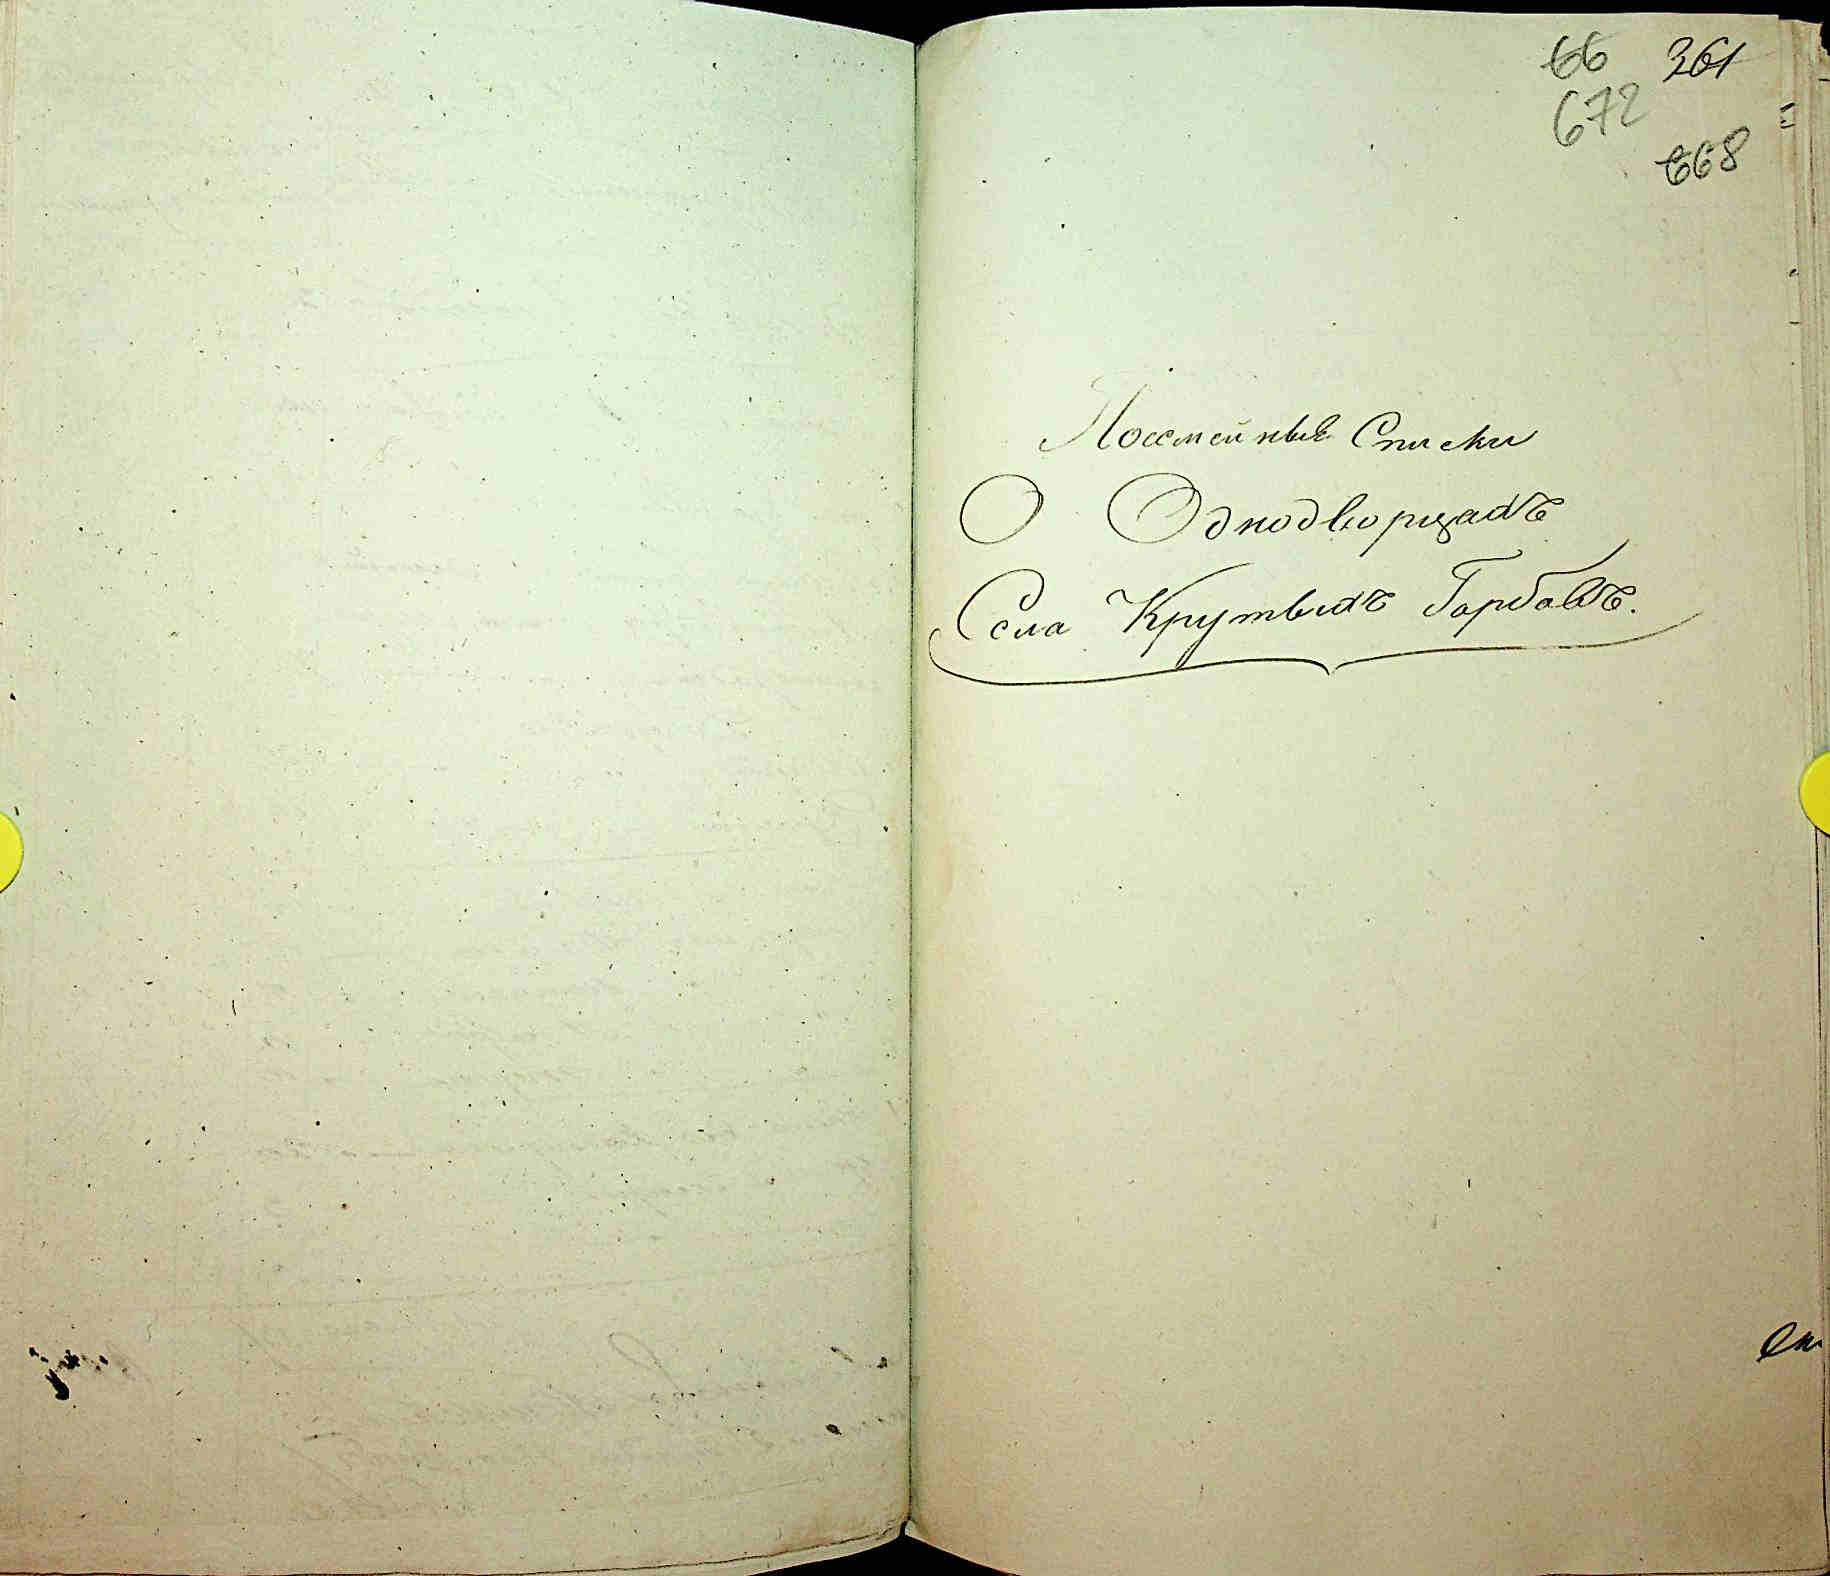 66 361
672
668
Посемейныя Списки
О Однодворцахъ
Села Крутыхъ Горбовъ.